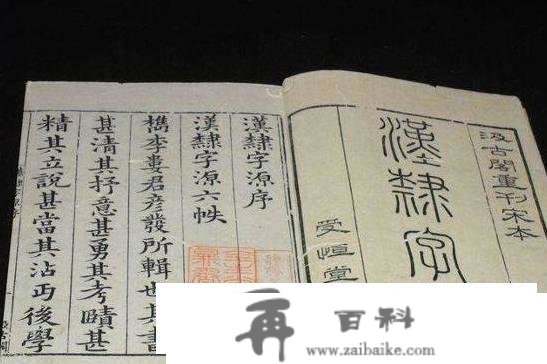 汲古閣重刊宋本
漢隸字
受恒堂
漢隸字源序
漢隸字源六帙
檇李婁君彥發所輯也其書
甚清其抒意甚勇其考賾甚
精其立說甚當其沾丐後學
再百科
www.zaibaike.com